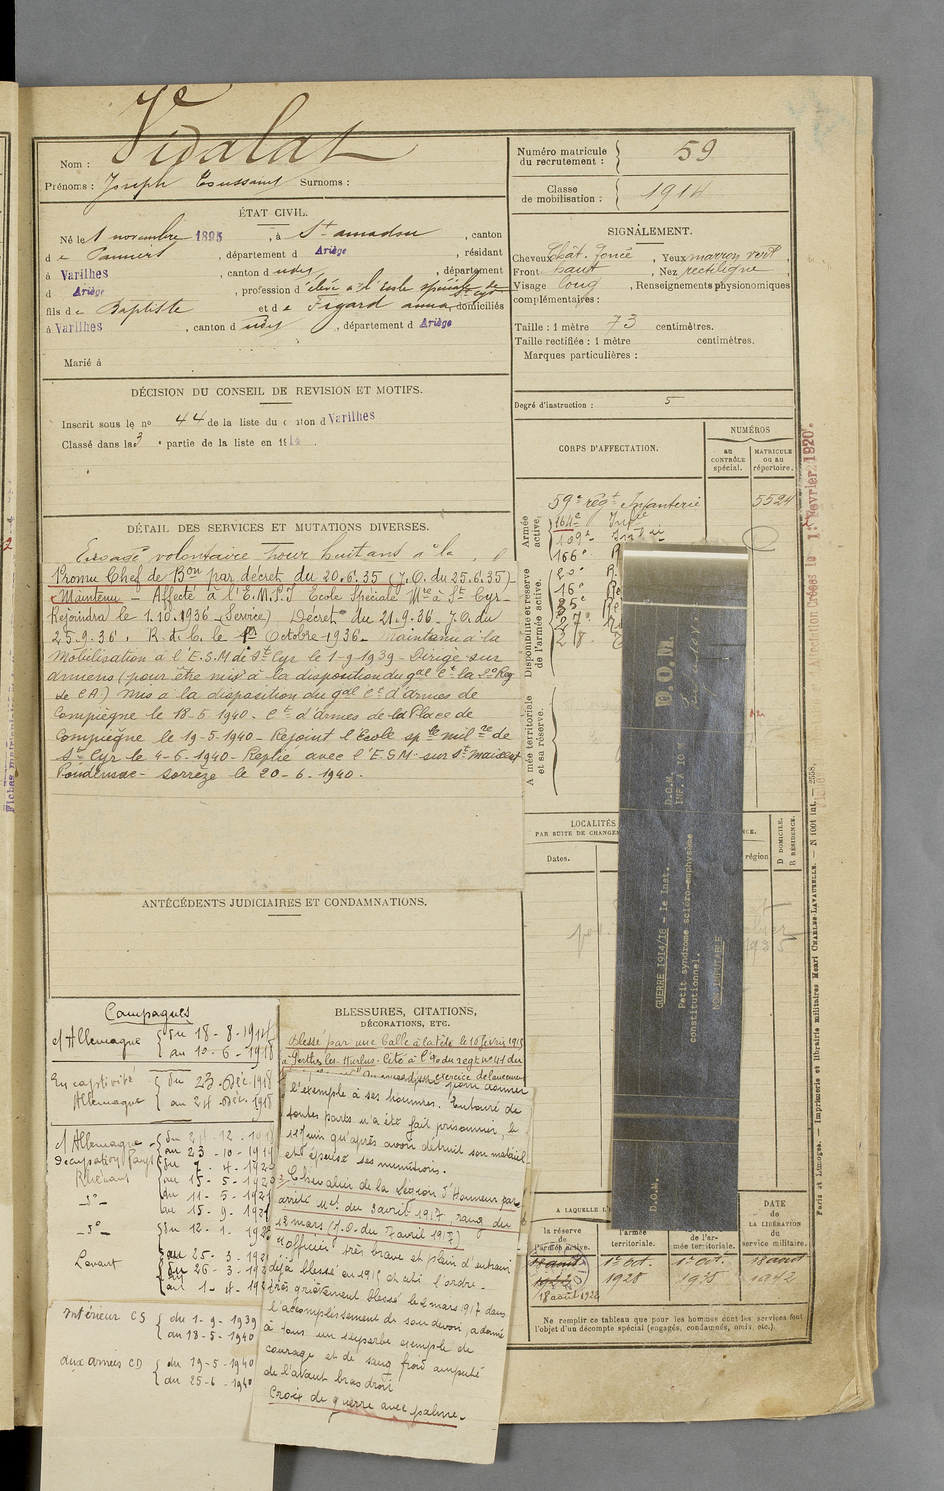 Nom : Vidalat
Prénoms : Joseph Toussaint Surnoms :
ÉTAT CIVIL.
Né le 1 novembre 1895, à St amadou, canton
de Pamiers, département d Ariège, résidant
à Varilhes, canton d udit, département
d Ariège, profession d'élève à l'Ecole spéciale de St Cyr
fils de Baptiste et de Figard anna domiciliés
à Varilhes, canton d udit, département d Ariège
Marié à
DÉCISION DU CONSEIL DE REVISION ET MOTIFS.
Inscrit sous le no 44 de la liste du canton d Varilhes
Classé dans la 3e partie de la liste en 1914.
DÉTAIL DES SERVICES ET MUTATIONS DIVERSES.
Engagé volontaire pour huit ans à la
Promu Chef de Bon par décret du 20.6.35 (J.O. du 25.6.35)-
Maintenu - Affecté à l'E.M.P.I Ecole Spéciale Mre à St Cyr-
Rejoindra le 1.10.1936 (Service) Décret du 21-9-36 - J.O. du
25-9-36. R. d. C. le 1er Octobre-1936- Maintenu à la
Mobilisation à l'E.S.M de St Cyr le 1-9-1939- Dirigé sur
Amiens (pour être mis à la disposition du gal Ct la 2e Reg
de CA.) Mis à la disposition du gal Ct d'armes de
Compiègne le 18-5-1940. Ct d'armes de la Place de
Compiègne le 19-5-1940- Rejoint l'Ecole sple milre de
St Cyr le 4-6-1940- Replié avec l'E.S.M. sur St Maixent
- Sorrèze le 20-6-1940.
ANTÉCÉDENTS JUDICIAIRES ET CONDAMNATIONS.
Campagnes
cl Allemagne { du 18-8-1914
au 10-6-1918
En captivité { du 23 Déc. 1918
Allemagne { au 24 Déc. 1918
cl Allemagne { du 24-12-1918
au 23-10-1919
Occupation Pays { du 7-4-1920
Rhénans au 15-5-1920
-do- du 11-5-1921
au 15-9-1921
-do- { du 12-1-192
au 25-3-192
Levant { du 26-3-192
au 1-4-192
Intérieur CS { du 1-9-1939
au 18-5-1940
aux armées CD { du 19-5-1940
du 25-6-1940
BLESSURES, CITATIONS,
DÉCORATIONS, ETC.
Blessé par une balle à la tête le 10 février 1915
à Perthes les Hurlus- Cité à l'O. du regt no 41 du
exercice de lancement
l'exemple à ses hommes. Entouré de
toutes parts n'a été fait prisonnier, le
12 juin qu'après avoir détruit son matériel
et épuisé ses munitions.
Chevalier de la Légion d'Honneur par
arrêté mel. du 3 avril 1917, rang du
12 mars (J.O. du 7 avril 1917)
"officier très brave et plein d'entrain
déjà blessé en 1915 et cité à l'ordre.
très grièvement blessé le 2 mars 1917 dans
l'accomplissement de son devoir, a donné
à tous un superbe exemple de
courage et de sang froid amputé
de l'avant bras droit
Croix de guerre avec palme.
Numéro matricule
du recrutement : 59
Classe
de mobilisation : 1914
SIGNALEMENT.
Cheveux Chât. foncé, Yeux marron vert,
Front haut, Nez rectiligne
Visage long, Renseignements physionomiques
complémentaires :
Taille : 1 mètre 73 centimètres.
Taille rectifiée : 1 mètre centimètres.
Marques particulières :
Degré d'instruction : 5
CORPS D'AFFECTATION.
NUMÉROS
au CONTRÔLE spécial.
MATRICULE OU AU répertoire.
Armée active.
59e régt Infanterie 5524
164e Infie
109e Infie
166e R
20e R
16e Re
35e Re
27e
28
Disponibilité et réserve de l'armée active.
Armée territoriale et sa réserve.
D.O.M.
D.O.M.
INF. A 10 %
GUERRE 1914/18 - 1e Inst.
Petit syndrome scléro-emphysème
constitutionnel.
NON IMPUTABLE
D.O.M.
LOCALITÉS
PAR SUITE DE CHANGEM
Dates.
région
D DOMICILE.
R RÉSIDENCE.
1935
A LAQUELLE L'
la réserve
de l'armée active.
l'armée
territoriale.
de l'ar-
mée territoriale.
DATE
de
LA LIBÉRATION
du
service militaire.
18 août 1922
18 août 1922
1er oct. 1928
1er oct. 1935
18 août 1942
Ne remplir ce tableau que pour les hommes dont les services font
l'objet d'un décompte spécial (engagés, condamnés, omis, etc.).
Affectation Créées le 1er Février 1920.
Paris et Limoges. — Imprimerie et librairie militaires Henri CHARLES-LAVAUZELLE. — N 1001 int. — 2558.